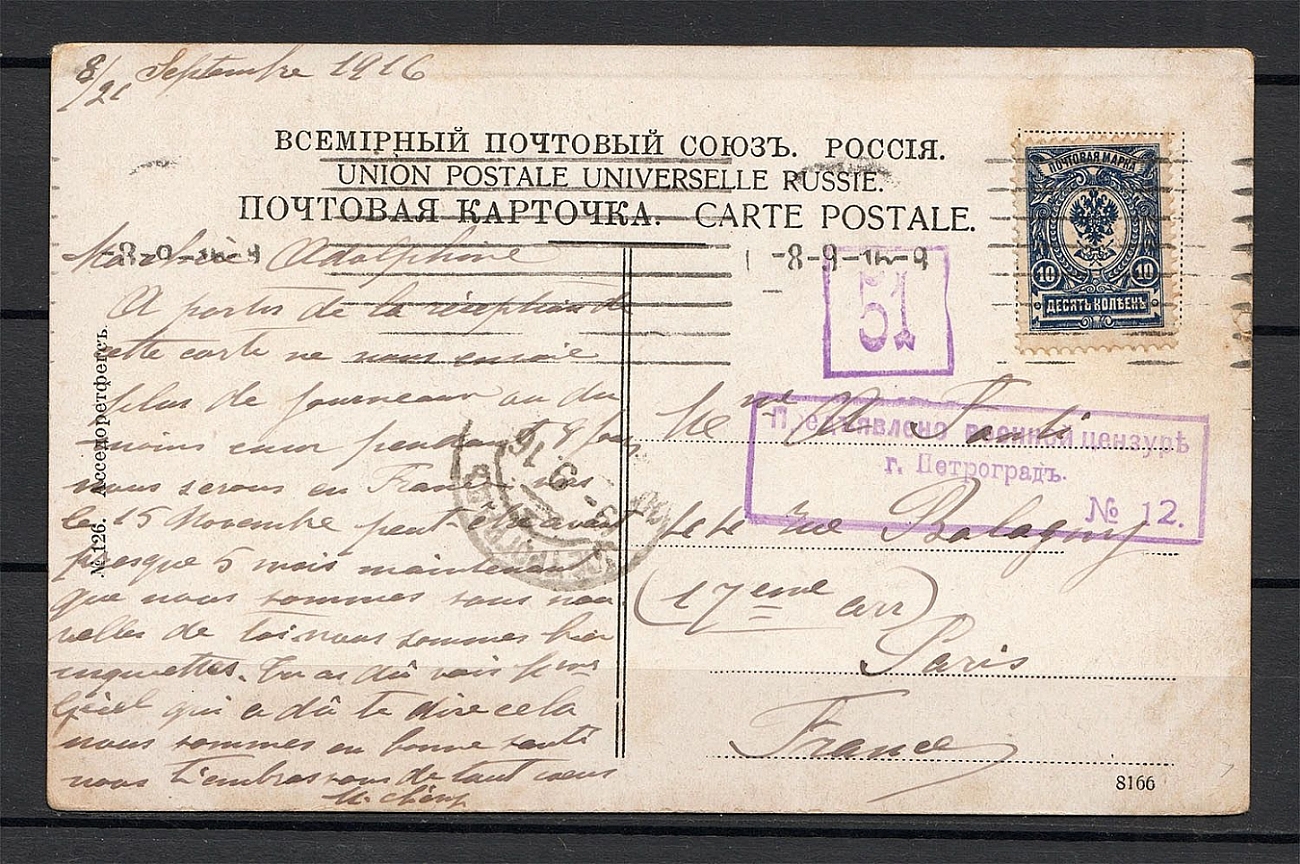 8/21 Septembre 1916
ВСЕМІРНЫЙ ПОЧТОВЫЙ СОЮЗЪ. РОССІЯ.
UNION POSTALE UNIVERSELLE RUSSIE.
ПОЧТОВАЯ КАРТОЧКА. CARTE POSTALE.
ПОЧТОВАЯ МАРКА
10 10
ДЕСЯТЬ КОПѢЕКЪ
-8-9-16-9
-8-9-16-9
51
Ma chère Adolphine
A partir de la réception de
cette carte ne nous envoie
plus de journeaux ou du
moins pendant
nous serons en France vers
le 15 Novembre peut-être avant
presque 5 mois maintenant
que nous sommes sans nou
velles de toi nous sommes bien
inquiettes. Tu as dû voir Mme
qui a dû te dire cela
nous sommes en bonne santé
nous t'embrassons de tout coeur
№ 126. Ассеморетфегсъ.
9 16
Предъявлено военной цензурѣ
г. Петроградъ.
№ 12.
Mme A Santi
44 rue Balagny
(17eme arr)
Paris
France
8166